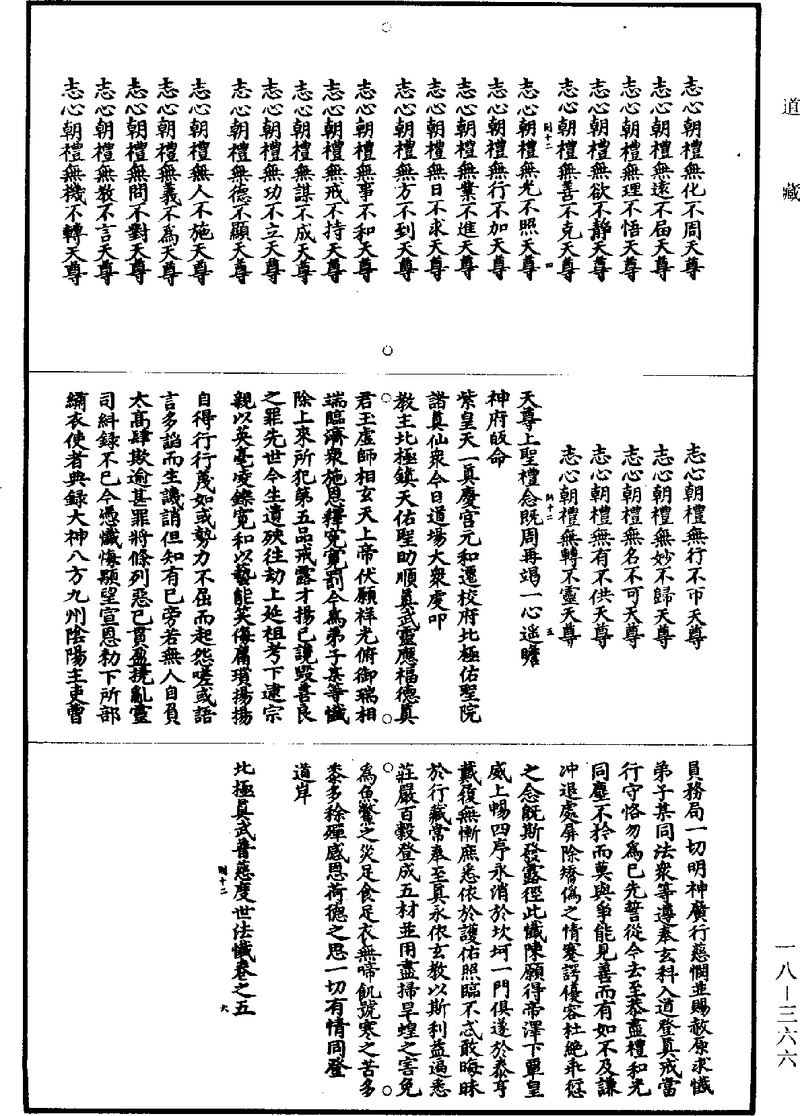 道藏
志心朝禮無化不周天尊
志心朝禮無遠不屆天尊
志心朝禮無理不悟天尊
志心朝禮無欲不静天尊
志心朝禮無善不克天尊
志心朝禮無光不照天尊
志心朝禮無行不加天尊
志心朝禮無業不進天尊
志心朝禮無日不求天尊
志心朝禮無方不到天尊
志心朝禮無事不和天尊
志心朝禮無戒不持天尊
志心朝禮無謀不成天尊
志心朝禮無功不立天尊
志心朝禮無德不顯天尊
志心朝禮無人不施天尊
志心朝禮無義不為天尊
志心朝禮無問不對天尊
志心朝禮無教不言天尊
志心朝禮無機不轉天尊
志心朝禮無行不帀天尊
志心朝禮無妙不歸天尊
志心朝禮無名不可天尊
志心朝禮無有不供天尊
志心朝禮無轉不靈天尊
天尊上聖禮念既周再竭一心遥瞻
神府皈命
紫皇天一真慶宮元和遷校府北極佑聖院
諸真仙衆今日道場大衆虔叩
教主北極鎮天佑聖助順真武靈應福德真
君玉虛師相玄天上帝伏願祥光俯御瑞相
端臨濟衆施恩釋冤寬罰今為弟子某等懺
除上來所犯第五品戒露才揚己譭毀善良
之罪先世今生遺殃往劫上延祖考下逮宗
親以英毫凌鑠寬和以藝能笑侮孱瑣揚揚
自得行行蔑如或勢力不屈而起怨嗟或語
言多諂而生譏誚但知有己旁若無人自負
太高肆欺逾甚罪將條列惡已貫盈撓亂靈
司糾録不已今憑懺悔願望宣恩勑下所部
繡衣使者典録大神八方九州陰陽主吏曹
員務局一切明神廣行慈憫並賜赦原求懺
弟子某同法衆等遵奉玄科入道登真戒當
行守恪勿為己先誓從今去至恭盡禮和光
同塵不矜而莫與争能見善而有如不及謙
冲退處屏除矯偽之情謇諤優容杜絶乖愆
之念既斯發露徑此懺陳願得帝澤下覃皇
威上暢四序永消於坎坷一門俱遂於泰亨
戴復無慚庶悉依於護佑照臨不忒敢晦昧
於行藏常奉至真永依玄教以斯利益遍悉
莊嚴百穀登成五材並用盡掃旱蝗之害免
為魚鱉之災足食足衣無啼飢號寒之苦多
黍多稌殫感恩荷德之思一切有情同登
道岸
北極真武普慈度世法懺卷之五
一八—三六六